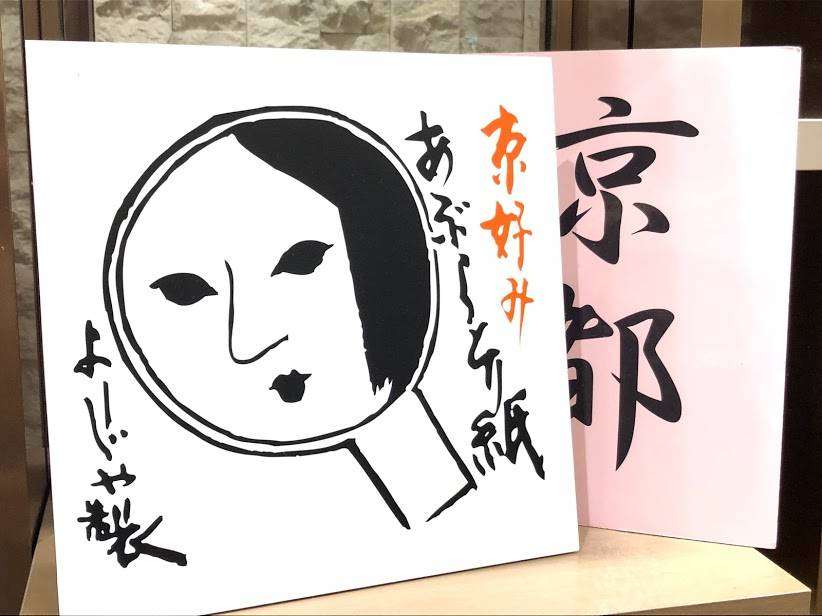 京好み
あぶらとり紙
よーじや製
京都